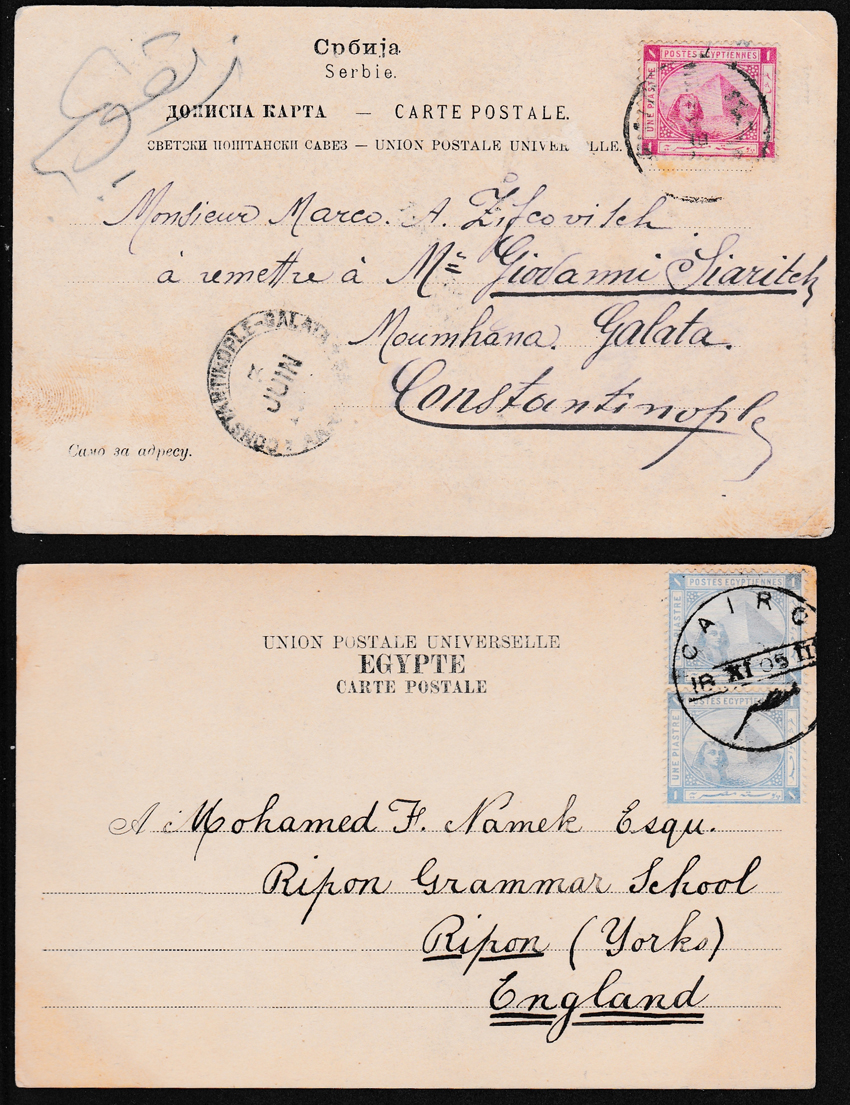 Србија
Serbie.
ДОПИСНА КАРТА — CARTE POSTALE.
СВЕТСКИ ПОШТАНСКИ САВЕЗ — UNION POSTALE UNIVER LLE.
POSTES EGYPTIENNES
UNE PIASTRE
Monsieur Marco. A. Zifcovitch
à remettre à Mr Giovanni Siaritch
Moumhana. Galata.
Constantinople
CONSTANTINOPLE-GALATA
JUIN
Само за адресу.
UNION POSTALE UNIVERSELLE
EGYPTE
CARTE POSTALE
POSTES EGYPTIENNES
UNE PIASTRE
CAIRO
18 XI 05 II
POSTES EGYPTIENNES
UNE PIASTRE
A Mohamed F. Namek Esqu.
Ripon Grammar School
Ripon (Yorks)
England